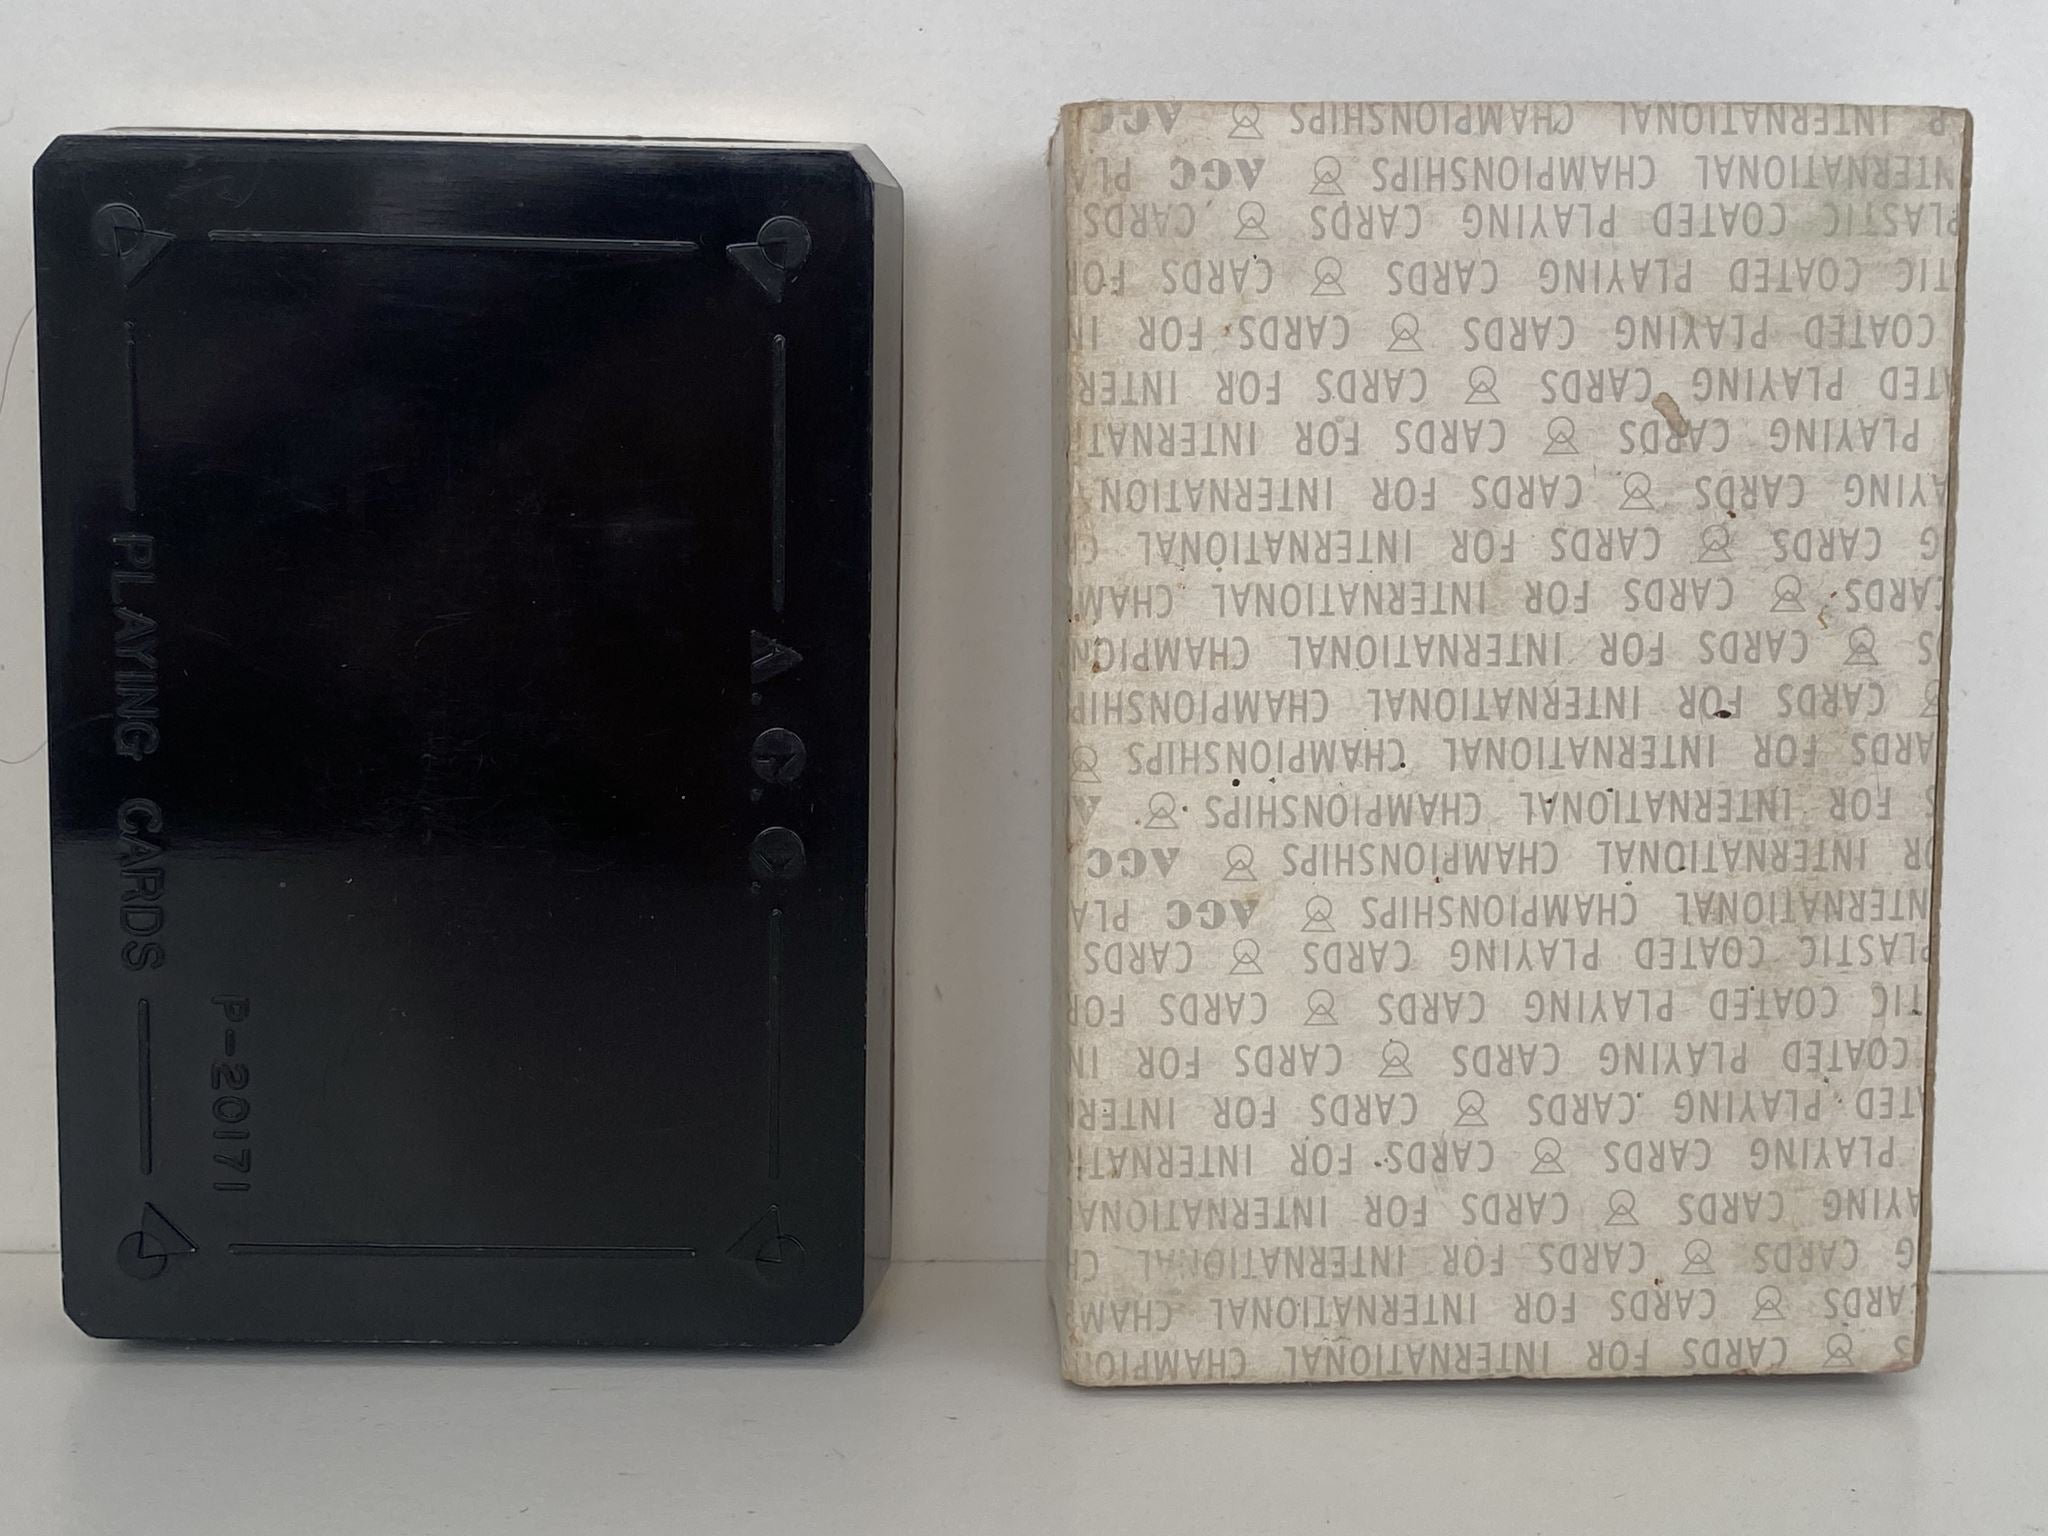 A.G.C.
P-20171
PLAYING CARDS
S CARDS FOR INTERNATIONAL CHAMPION
ARDS CARDS FOR INTERNATIONAL CHAM
G CARDS CARDS FOR INTERNATIONAL CH
AYING CARDS CARDS FOR INTERNATIONA
PLAYING CARDS CARDS FOR INTERNAT
TED PLAYING CARDS CARDS FOR INTER
COATED PLAYING CARDS CARDS FOR IN
TIC COATED PLAYING CARDS CARDS FOR
PLASTIC COATED PLAYING CARDS CARDS
NTERNATIONAL CHAMPIONSHIPS AGC PLA
OR INTERNATIONAL CHAMPIONSHIPS AGC
S FOR INTERNATIONAL CHAMPIONSHIPS A
ARDS FOR INTERNATIONAL CHAMPIONSHIPS
CARDS FOR INTERNATIONAL CHAMPIONSHIP
S CARDS FOR INTERNATIONAL CHAMPION
CARDS CARDS FOR INTERNATIONAL CHAM
G CARDS CARDS FOR INTERNATIONAL C
AYING CARDS CARDS FOR INTERNATION
PLAYING CARDS CARDS FOR INTERNAT
TED PLAYING CARDS CARDS FOR INTER
COATED PLAYING CARDS CARDS FOR IN
TIC COATED PLAYING CARDS CARDS FOR
PLASTIC COATED PLAYING CARDS CARDS
NTERNATIONAL CHAMPIONSHIPS AGC PLA
R INTERNATIONAL CHAMPIONSHIPS AGC